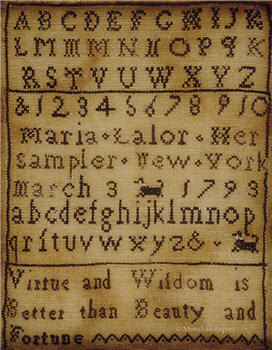 A B C D E F G H I J K
L M M N N O P Q K
R S T V U W X Y Z
& 1 2 3 4 5 6 7 8 9 10
Maria Lalor Her
Sampler New York
March 3 1793
abcdefghijklmnop
qrstuvwxyz&
Virtue and Wisdom is
Better than Beauty and
Fortune
© Monahan Papers